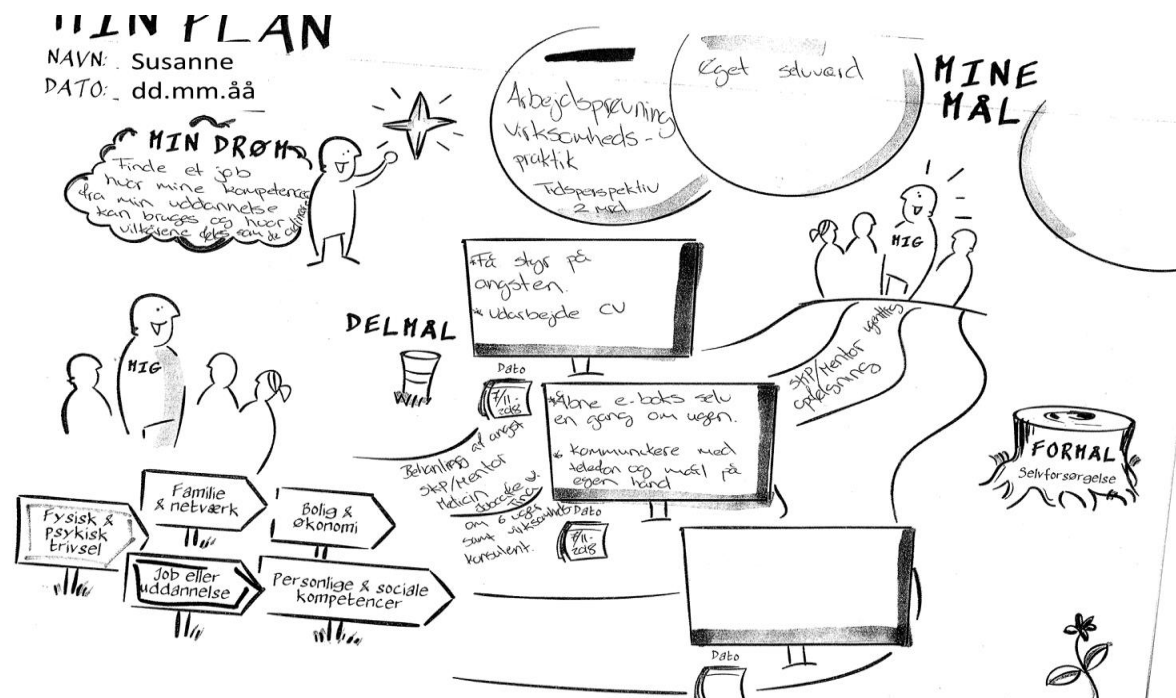 MIN PLAN
NAVN: Susanne
DATO: dd.mm.åå
MIN DRØM
Finde et job
hvor mine kompetencer
fra min uddannelse
kan bruges og hvor
vilkårene som de
Arbejdsprøvning
virksomheds-
praktik
Tidsperspektiv
2 mrd
Øget selvværd
MINE
MÅL
MIG
*Få styr på
angsten.
* Udarbejde CV
DELMÅL
Dato
7/11-
2018
SKP/Mentor ugentlig
opfølgning
MIG
*Åbne e-boks selv
en gang om ugen.
* kommunikere med
telefon og mail på
egen hånd
Behanling af angst
SKP/Mentor
Medicin
om 6 uger
samt virksomheds
konsulent.
Dato
7/11-
2018
FORMÅL
Selvforsørgelse
Fysisk &
psykisk
trivsel
Familie
& netværk
Bolig &
økonomi
Job eller
uddannelse
Personlige & sociale
kompetencer
Dato